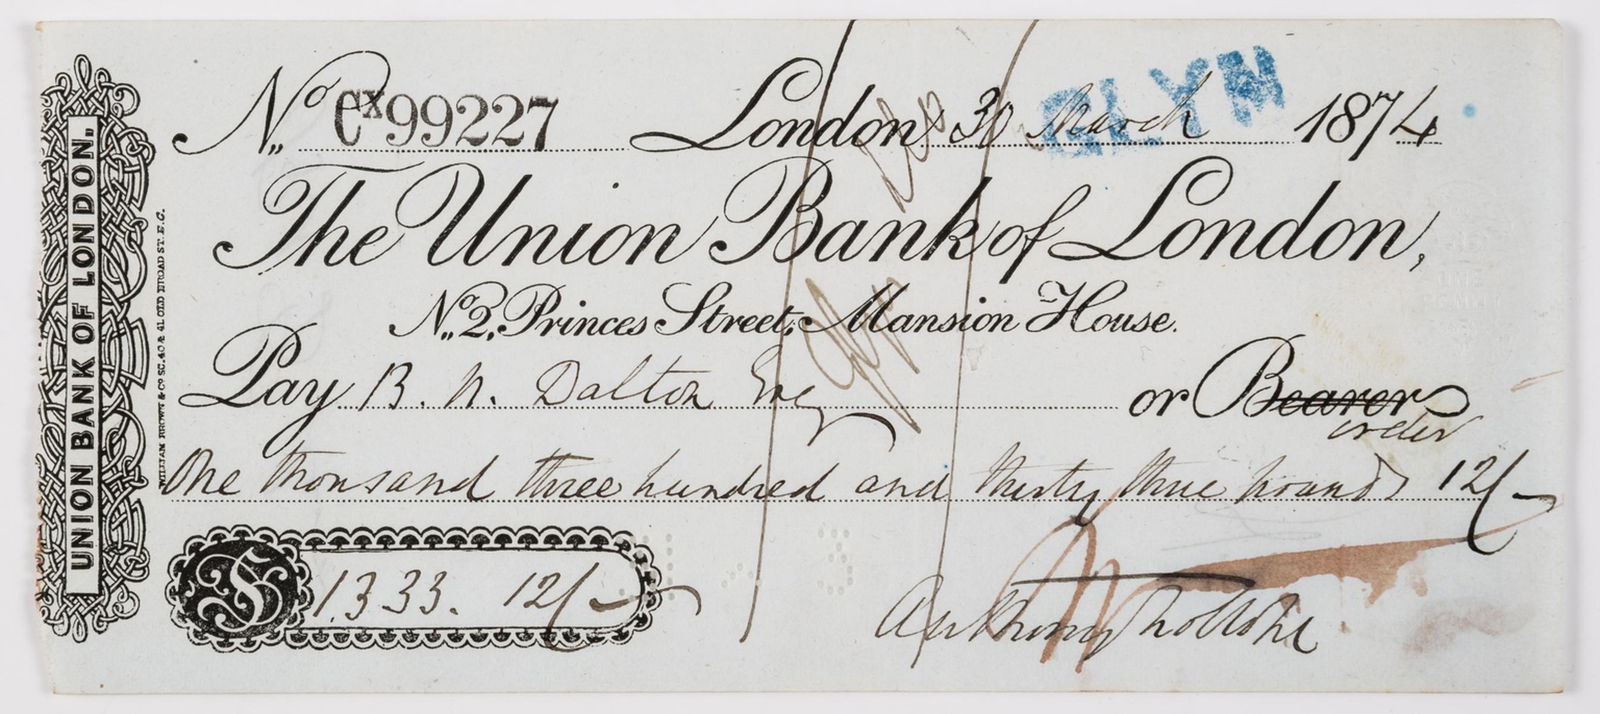 UNION BANK OF LONDON.
WILLIAM BROWN & CO SC. 40 & 41 OLD BROAD ST. E.C.
No. Cx99227 London 30 March 1874
GLYN
The Union Bank of London,
No. 2, Princes Street, Mansion House.
Pay B. N. Dalton Esq or Bearer
order
One thousand three hundred and thirty three pounds 12/-
£ 1333. 12/-
Anthony Trollope